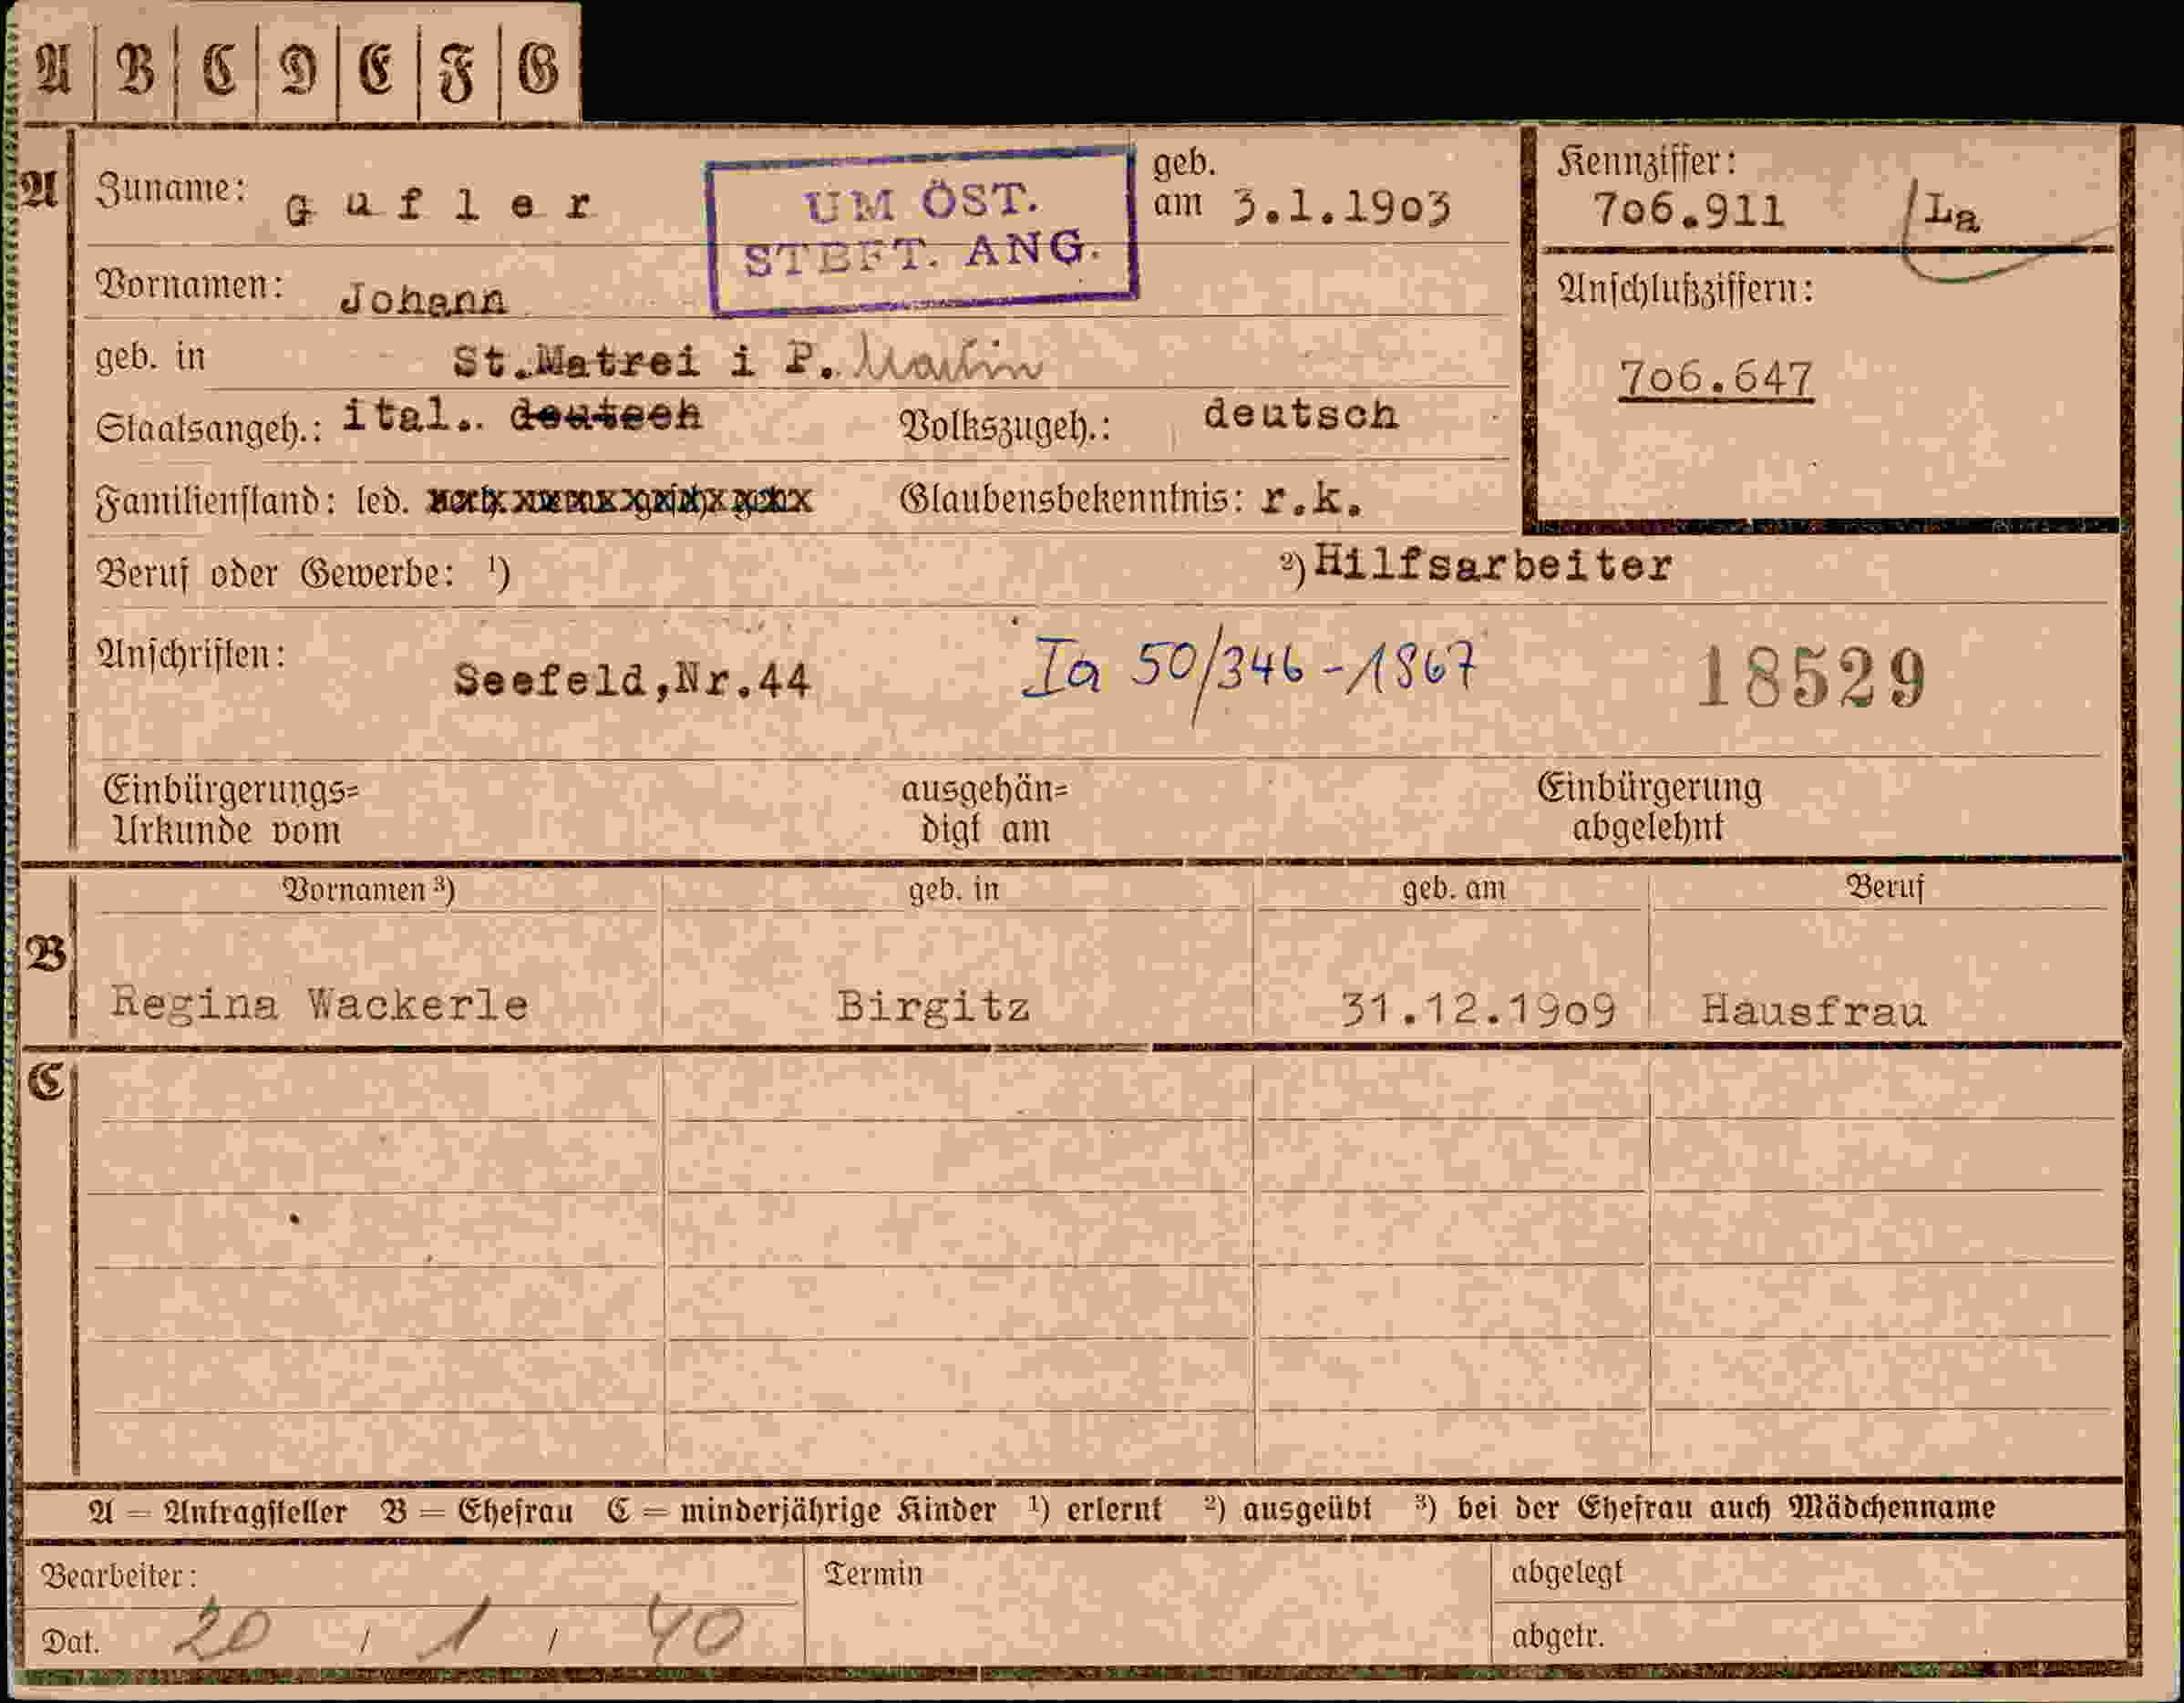 A B C D E F G
A Zuname: Gufler
UM ÖST.
STBFT. ANG.
geb.
am 3.1.1903
Kennziffer:
706.911 /La
Vornamen: Johann
Anschlußziffern:
706.647
geb. in St.Matrei i P. Martin
Staatsangeh.: ital.. deutsch Volkszugeh.: deutsch
Familienstand: led. Glaubensbekenntnis: r.k.
Beruf oder Gewerbe: ¹) ²) Hilfsarbeiter
Anschriften: Seefeld,Nr.44 Ia 50/346-1867 18529
Einbürgerungs=
Urkunde vom
ausgehän=
digt am
Einbürgerung
abgelehnt
B Vornamen ³) geb. in geb. am Beruf
Regina Wackerle Birgitz 31.12.1909 Hausfrau
C
A = Antragsteller B = Ehefrau C = minderjährige Kinder ¹) erlernt ²) ausgeübt ³) bei der Ehefrau auch Mädchenname
Bearbeiter: Termin abgelegt
Dat. 20 / 1 / 40 abgetr.